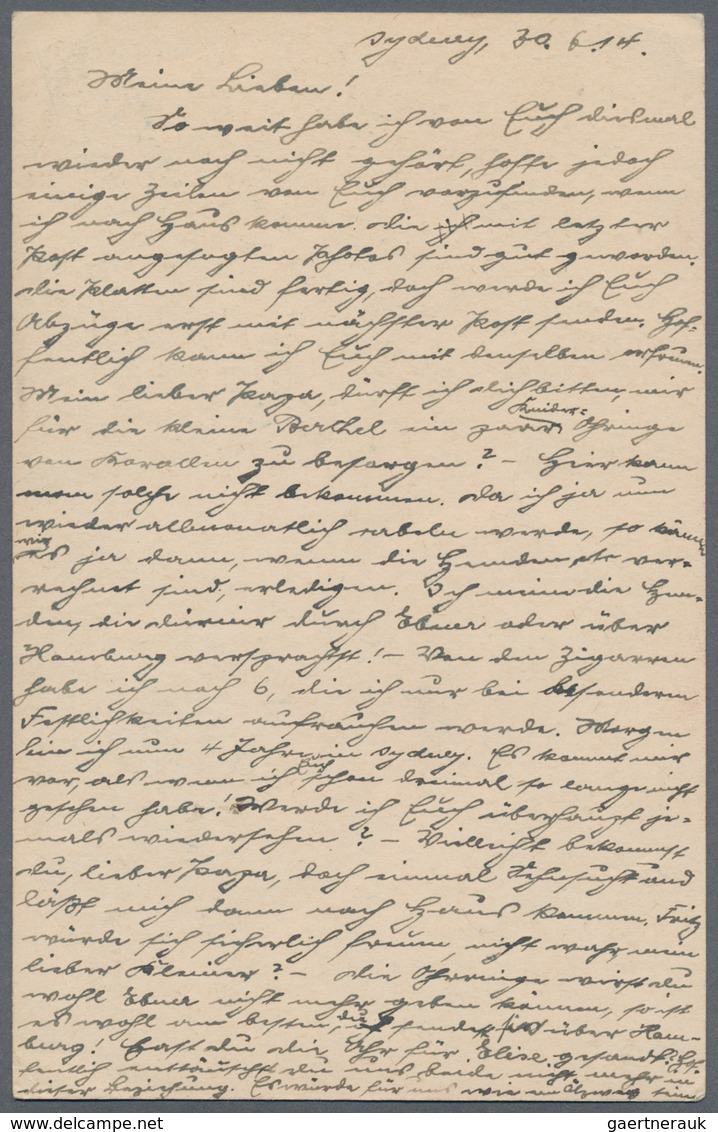 Sydney, 30. 6. 14.
Meine Lieben!
So weit habe ich von Euch diesmal
wieder noch nicht gehört, hoffe jedoch
einige Zeilen von Euch vorzufinden, wenn
ich nach Haus komme. Die mit letzter
Post angesagten Photos sind gut geworden.
Die Platten sind fertig, doch werde ich Euch
Abzüge erst mit nächster Post senden. Hof-
fentlich kann ich Euch mit denselben erfreuen.
Mein lieber Papa, dürft ich Dich bitten, mir
Kinder-
für die kleine ein paar Ohringe
von Korallen zu besorgen? - Hier kann
man solche nicht bekommen. Da ich ja nun
wieder allmonatlich kabeln werde, so können
wir
es ja dann, wenn die Hemden etc ver-
rechnet sind, erledigen. Ich meine die Hem-
den, die Du mir durch Ebner oder über
Hamburg versprachst! - Von den Zigarren
habe ich noch 6, die ich nur bei besonderen
Festlichkeiten aufrauchen werde. Morgen
bin ich nun 4 Jahre in Sydney. Es kommt mir
Euch
vor, als wenn ich schon dreimal so lange nicht
gesehen habe! Werde ich Euch überhaupt je-
mals wiedersehen? - Vielleicht bekommst
Du, lieber Papa, doch einmal Sehnsucht und
läßt mich dann nach Haus kommen. Fritz
würde sich sicherlich freuen, nicht wahr, mein
lieber Kleiner? - Die Ohrringe wirst Du
wohl Ebner nicht mehr geben können, so ist
es wohl am besten, Du sendest über Ham-
burg! Hast Du die Uhr für Elise gesandt? Hof-
fentlich enttäuschst Du uns beide nicht mehr in
dieser Beziehung. Es würde für uns wie ein sein
gaertnerauk